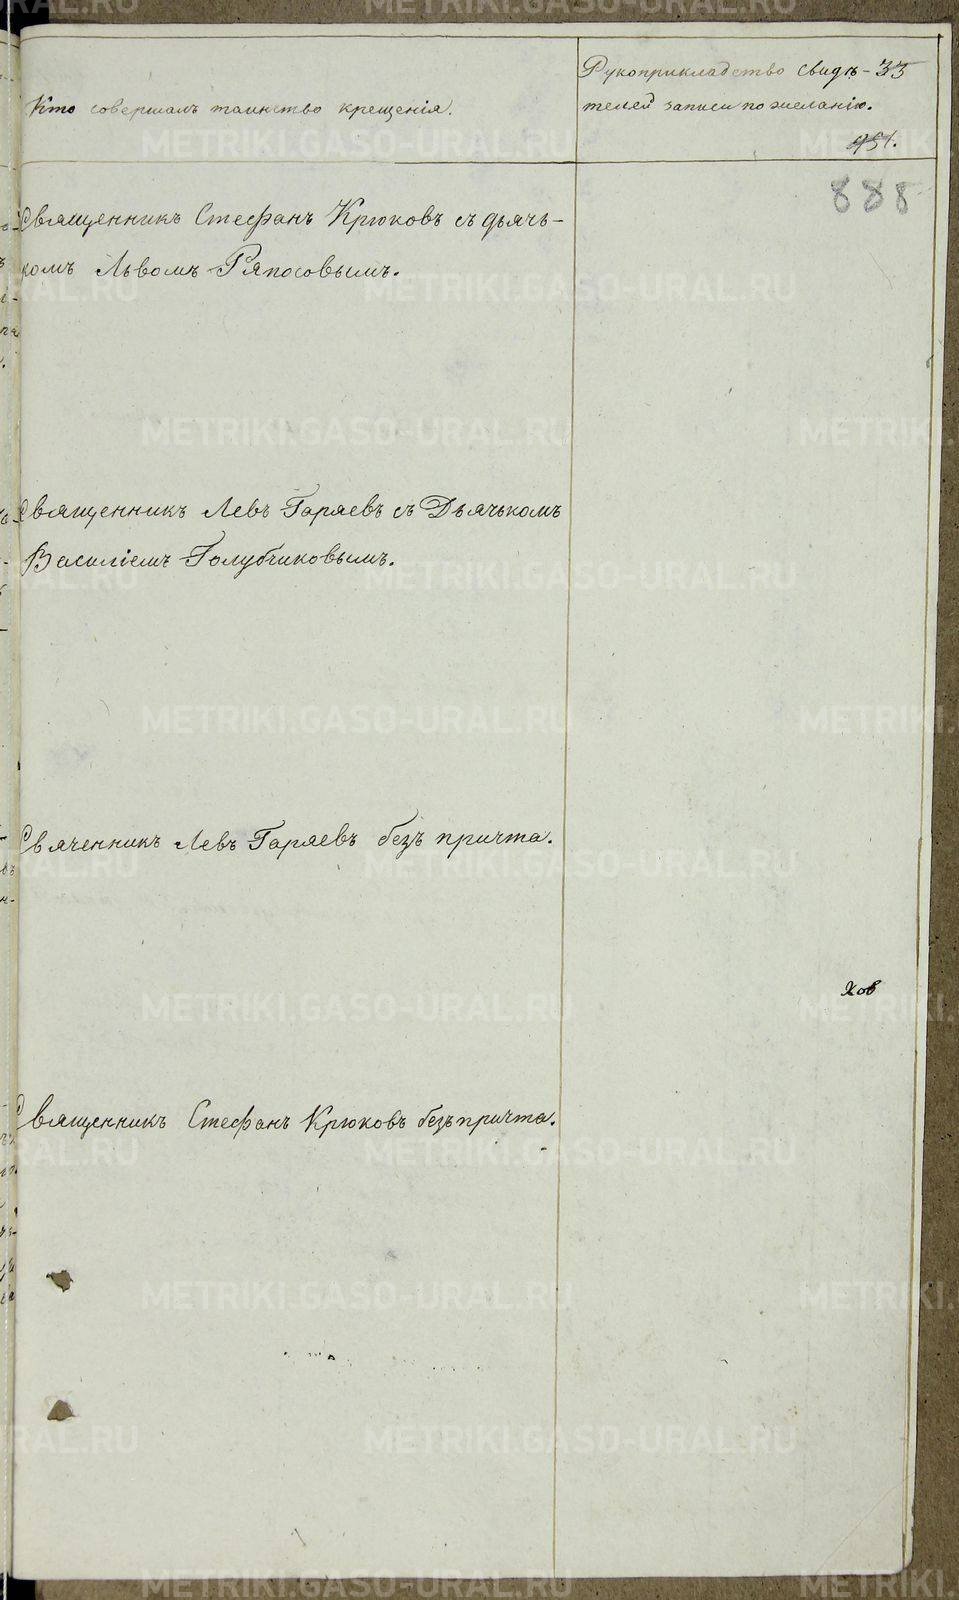 Кто совершалъ таинство крещенія.
Рукоприкладство свидѣ-
телей записи по желанію.
33
451.
888
Священникъ Стефанъ Крюковъ съ дьячь-
комъ Львомъ Ряпосовымъ.
Священникъ Левъ Гаряевъ съ Дьячькомъ
Василіемъ Голубчиковымъ.
Свяченникъ Левъ Гаряевъ безъ причта.
Хов
Священникъ Стефанъ Крюковъ безъ причта.
METRIKI.GASO-URAL.RU